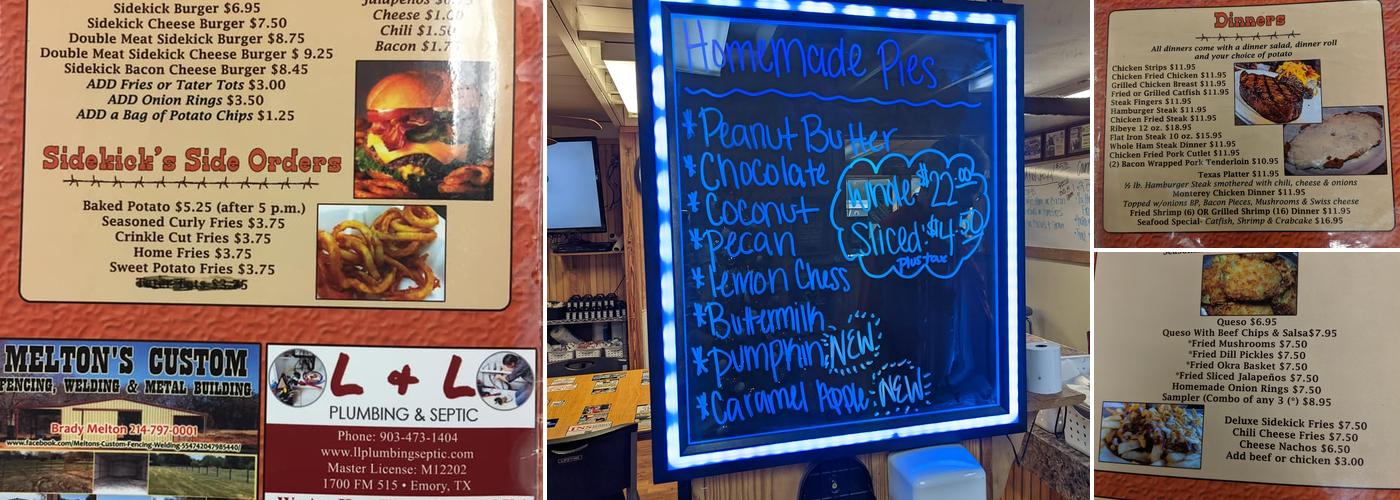 Sidekick Burger $6.95
Sidekick Cheese Burger $7.50
Double Meat Sidekick Burger $8.75
Double Meat Sidekick Cheese Burger $ 9.25
Sidekick Bacon Cheese Burger $8.45
ADD Fries or Tater Tots $3.00
ADD Onion Rings $3.50
ADD a Bag of Potato Chips $1.25
Cheese
Chili $1.50
Bacon
Sidekick's Side Orders
Baked Potato $5.25 (after 5 p.m.)
Seasoned Curly Fries $3.75
Crinkle Cut Fries $3.75
Home Fries $3.75
Sweet Potato Fries $3.75
MELTON'S CUSTOM
FENCING, WELDING & METAL BUILDING
Brady Melton 214-797-0001
www.facebook.com/Meltons-Custom-Fencing-Welding-554742047985440/
L & L
PLUMBING & SEPTIC
Phone: 903-473-1404
www.llplumbingseptic.com
Master License: M12202
1700 FM 515 • Emory, TX
Homemade Pies
*Peanut Butter
*Chocolate
*Coconut
*Pecan
*Lemon Chess
*Buttermilk
*Pumpkin NEW
*Caramel Apple NEW
Whole $22.00
Sliced: $4.50
plus tax
Dinners
All dinners come with a dinner salad, dinner roll
and your choice of potato
Chicken Strips $11.95
Chicken Fried Chicken $11.95
Grilled Chicken Breast $11.95
Fried or Grilled Catfish $11.95
Steak Fingers $11.95
Hamburger Steak $11.95
Chicken Fried Steak $11.95
Ribeye 12 oz. $18.95
Flat Iron Steak 10 oz. $15.95
Whole Ham Steak Dinner $11.95
Chicken Fried Pork Cutlet $11.95
(2) Bacon Wrapped Pork Tenderloin $10.95
Texas Platter $11.95
½ lb. Hamburger Steak smothered with chili, cheese & onions
Monterey Chicken Dinner $11.95
Topped w/onions BP, Bacon Pieces, Mushrooms & Swiss cheese
Fried Shrimp (6) OR Grilled Shrimp (16) Dinner $11.95
Seafood Special- Catfish, Shrimp & Crabcake $16.95
Queso $6.95
Queso With Beef Chips & Salsa$7.95
*Fried Mushrooms $7.50
*Fried Dill Pickles $7.50
*Fried Okra Basket $7.50
*Fried Sliced Jalapeños $7.50
Homemade Onion Rings $7.50
Sampler (Combo of any 3 (*) $8.95
Deluxe Sidekick Fries $7.50
Chili Cheese Fries $7.50
Cheese Nachos $6.50
Add beef or chicken $3.00